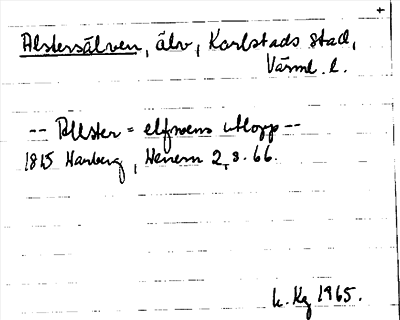 +
Alstersälven, älv, Karlstads stad,
Värml. l.
-- Alster = elfvens utlopp --
1815 Hanberg, Venern 2, s. 66.
h. Kg 1965.